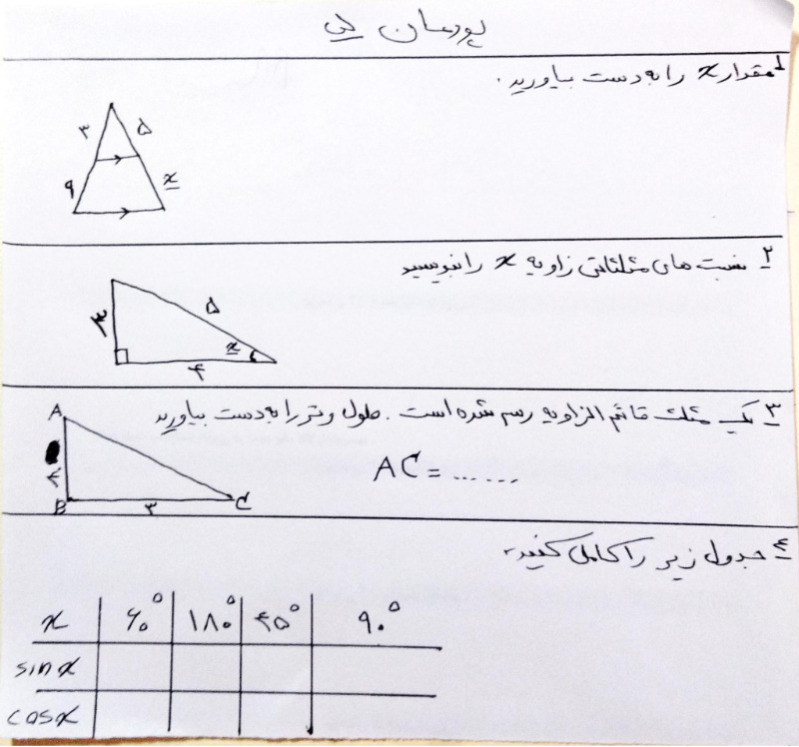 ۱ مقدار x را به دست بیاورید.
۳
۵
۹
x
۲ نسبت های مثلثاتی زاویه x را بنویسید
۳
۵
x
۴
۳ یک مثلث قائم الزاویه رسم شده است. طول وتر را به دست بیاورید
A
AC = ......
B
۳
C
۴ جدول زیر را کامل کنید.
x ۶۰° ۱۸۰° ۴۵° ۹۰°
sin x
cos x